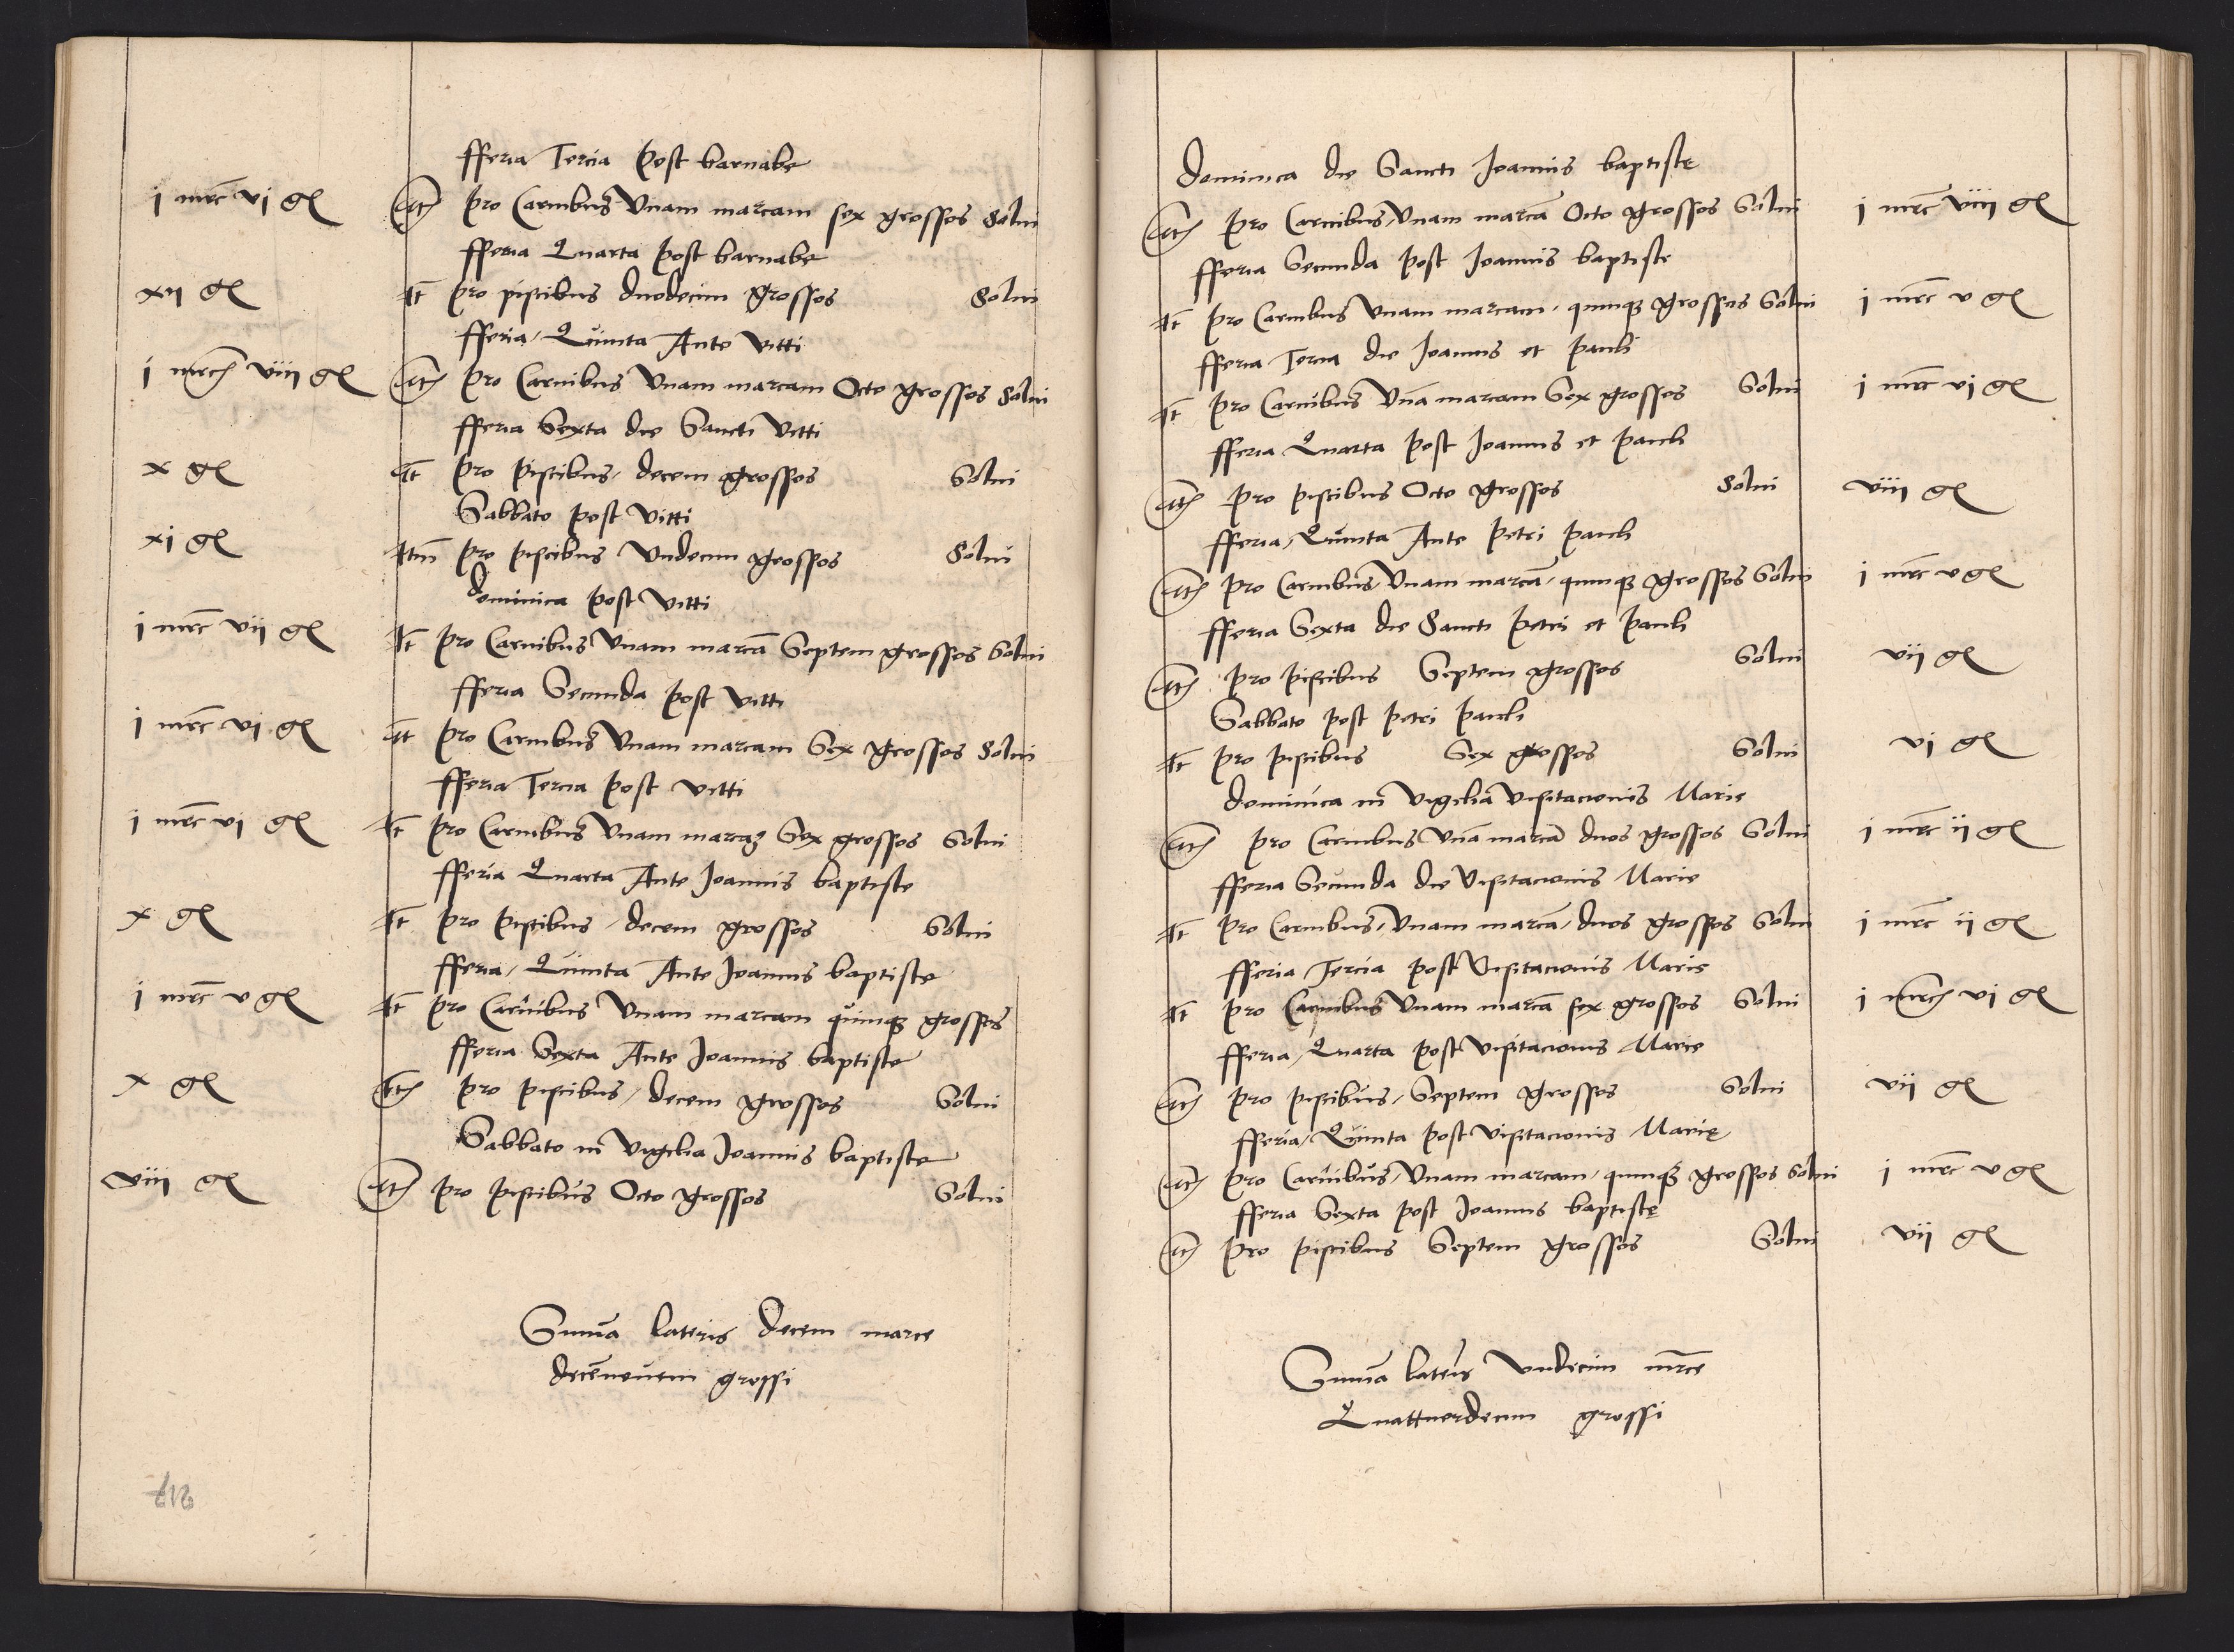 fferia Tercia Post barnabe
i mrc vi gl Item pro Carnibus Vnam marcam sex grossos Solui
fferia Quarta post barnabe
xii gl It pro piscibus duodecim grossos Solui
fferia Quinta Ante Vitti
i mrc viii gl Item pro Carnibus Vnam marcam Octo grossos Solui
fferia Sexta die Sancti Vitti
x gl It pro piscibus decem grossos Solui
Sabbato post Vitti
xi gl Itm pro piscibus Vndecim grossos Solui
dominica post Vitti
i mrc vii gl It pro Carnibus Vnam marcā Septem grossos Solui
fferia Secunda post Vitti
i mrc vi gl It pro Carnibus Vnam marcam Sex grossos Solui
fferia Tercia post vitti
i mrc vi gl It pro Carnibus Vnam marcaz Sex grossos Solui
fferia Quarta Ante Joannis baptiste
x gl It pro piscibus decem grossos Solui
fferia Quinta Ante Joannis baptiste
i mrc v gl It pro Carnibus Vnam marcam quinqz grossos
fferia Sexta Ante Joannis baptiste
x gl Item pro piscibus decem grossos Solui
Sabbato in Vigilia Joannis baptiste
viii gl Item pro piscibus Octo grossos Solui
Summa lateris decem marce
decēnouem grossi
217
dominica die Sancti Joannis baptistę
Item pro Carnibus Vnam marcā Octo grossos Solui i mrc viii gl
fferia Secunda post Joannis baptiste
It pro Carnibus Vnam marcam quinqz grossos Solui i mrc v gl
fferia Tercia die Joannis et pauli
It pro Carnibus Vnā marcam Sex grossos Solui i mrc vi gl
fferia Quarta post Joannis et pauli
Item pro piscibus Octo grossos Solui viii gl
fferia Quinta Ante petri pauli
Item pro Carnibus Vnam marcā quinqz grossos Solui i mrc v gl
fferia Sexta die Sancti petri et pauli
Item pro piscibus Septem grossos Solui vii gl
Sabbato post petri pauli
It pro piscibus Sex grossos Solui vi gl
dominica in Vigilia Visitacionis Marie
Item pro Carnibus Vnā marcā duos grossos Solui i mrc ii gl
fferia Secunda die Visitacionis Marie
It pro Carnibus Vnam marcā duos grossos Solui i mrc ii gl
fferia Tercia post Visitacionis Marie
It pro Carnibus Vnam marcā sex grossos Solui i mrc vi gl
fferia Quarta post Visitacionis Marie
Item pro piscibus Septem grossos Solui vii gl
fferia Quinta post Visitacionis Marię
Item pro Carnibus Vnam marcam quinqz grossos Solui i mrc v gl
fferia Sexta post Joannis baptistę
Item pro piscibus Septem grossos Solui vii gl
Summa lateris vndecim mrce
Quattuordecim grossi